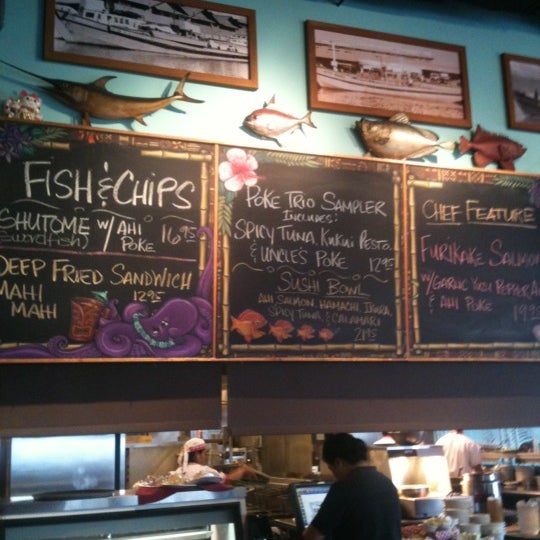 FISH & CHIPS
SHUTOME W/ AHI
(SWORDFISH) POKE 16.95
DEEP FRIED SANDWICH
MAHI 12.95
MAHI
POKE TRIO SAMPLER
INCLUDES:
SPICY TUNA, KUKUI PESTO,
& UNCLE'S POKE 12.95
SUSHI BOWL
AHI SALMON, HAMACHI, IKURA,
SPICY TUNA, & CALAMARI
21.95
CHEF FEATURE
FURIKAKE SALMON
W/ GARLIC YUSU PEPPER
& AHI POKE